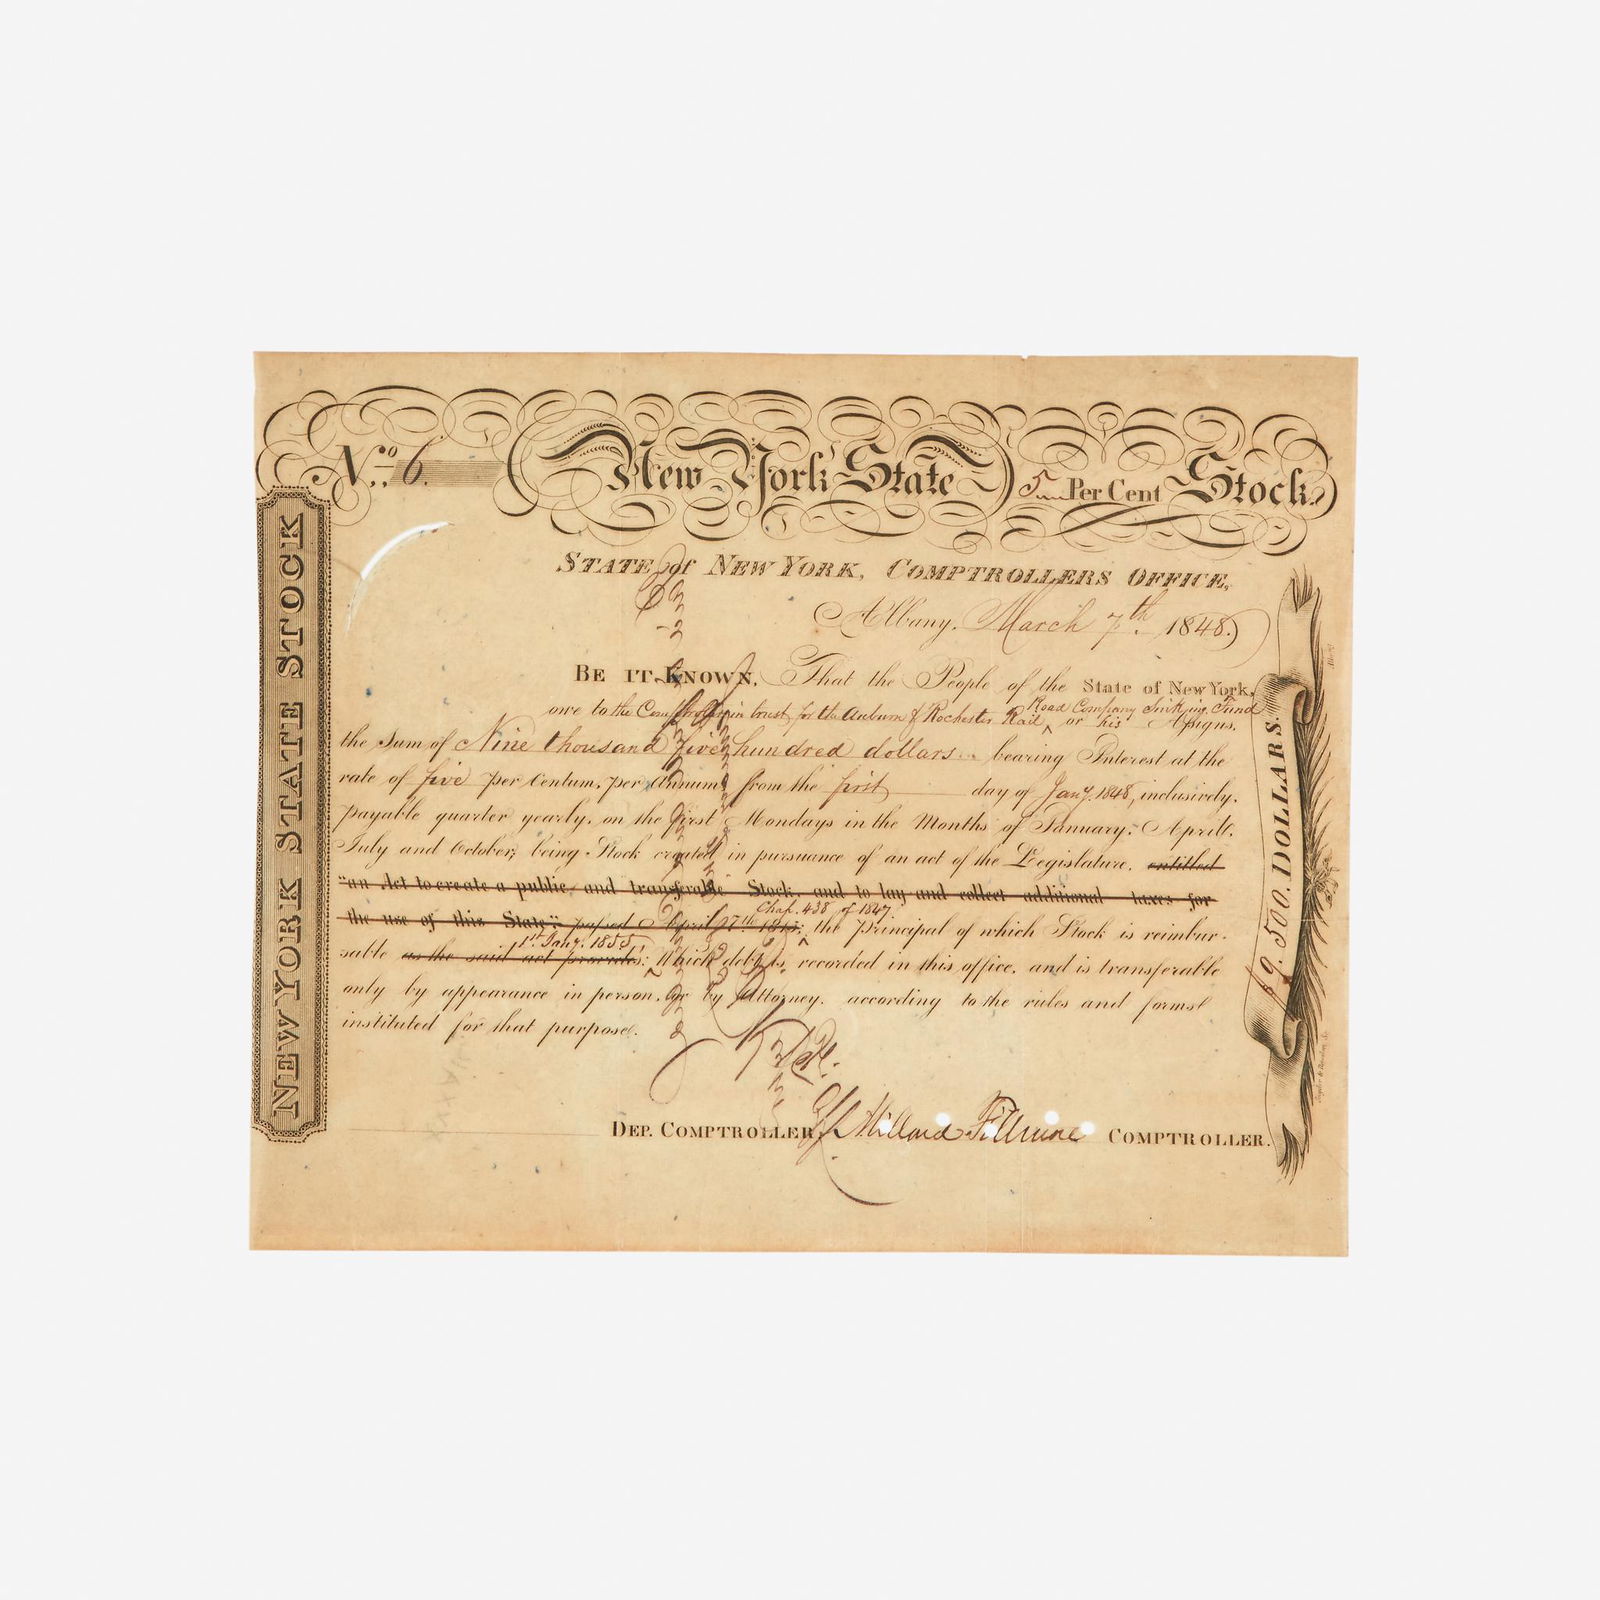 No. 6.
New York State 5 Per Cent Stock.
NEW YORK STATE STOCK
STATE of NEW YORK, COMPTROLLERS OFFICE,
Albany, March 7th 1848.
BE IT KNOWN, That the People of the State of New York,
Road Company Sinking Fund
owe to the Comptroller in trust for the Auburn & Rochester Rail ‸ or his Assigns,
the Sum of Nine thousand five hundred dollars bearing Interest at the
rate of five per Centum, per Annum from the first day of Jany. 1848, inclusively,
payable quarter yearly, on the first Mondays in the Months of January, April,
July and October; being Stock created in pursuance of an act of the Legislature, entitled
"an Act to create a public and transferable Stock, and to lay and collect additional taxes for
Chap. 438 of 1847.
the use of this State": passed April 27th ‸ the principal of which Stock is reimbur-
1st Jany. 1855
sable as the said act provides: Which debt is recorded in this office, and is transferable
only by appearance in person, or by Attorney, according to the rules and forms
instituted for that purpose.
DEP. COMPTROLLER. Millard Fillmore COMPTROLLER.
$9.500. DOLLARS.